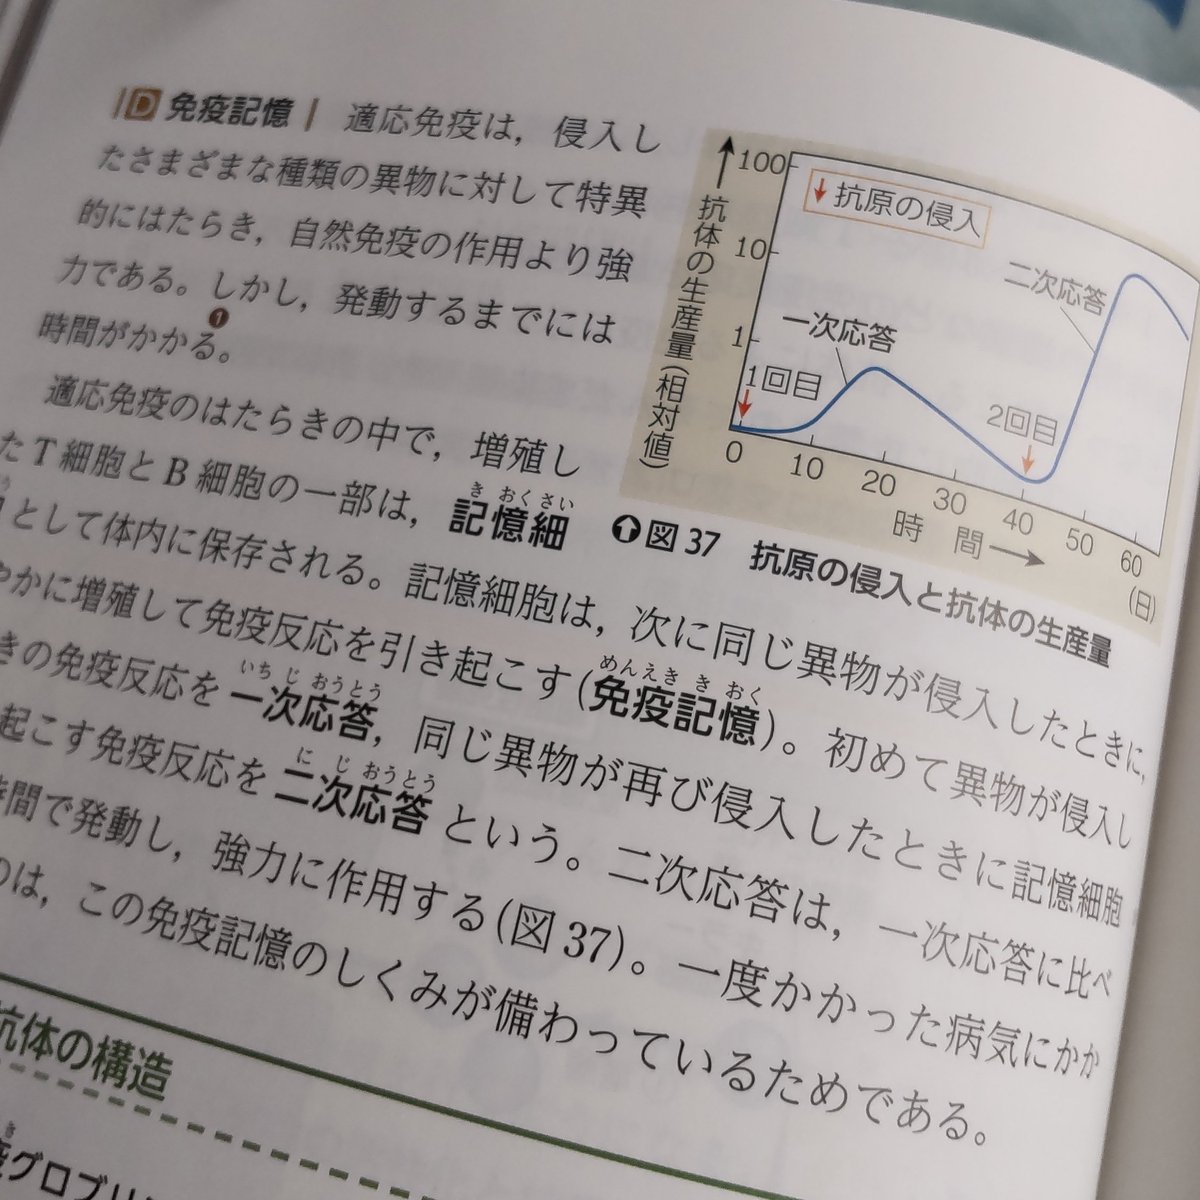 D 免疫記憶 適応免疫は，侵入し
たさまざまな種類の異物に対して特異
的にはたらき，自然免疫の作用より強
力である。しかし，発動するまでには
時間がかかる。❶
適応免疫のはたらきの中で，増殖し
たT細胞とB細胞の一部は，記憶細
として体内に保存される。記憶細胞は，次に同じ異物が侵入したときに，
やかに増殖して免疫反応を引き起こす(免疫記憶)。初めて異物が侵入し
きの免疫反応を一次応答，同じ異物が再び侵入したときに記憶細胞
起こす免疫反応を二次応答という。二次応答は，一次応答に比べ
時間で発動し，強力に作用する(図37)。一度かかった病気にかか
のは，この免疫記憶のしくみが備わっているためである。
き おくさい
めんえき き おく
いち じ おうとう
に じ おうとう
抗体の生産量(相対値)
100
10
1
抗原の侵入
一次応答
二次応答
1回目
2回目
0 10 20 30 40 50 60
時 間
(日)
図37 抗原の侵入と抗体の生産量
抗体の構造
き
疫グロブリン